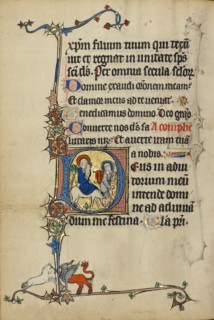 xp̄m filium tuum qui tecū
uit et regnat in unitate sp̄s
sc̄i ds. Per omnia secula sc̄lor
Domine exaudi or̄onem meam
Et clamor meus ad te ueniat.
Benedicamus domino. Deo gr̄as
Conuerte nos ds̄ sa A complie
lutaris nr̄. Et auerte iram tuā
a nobis.
Deus in adiu
torium meū
intende domi
ne ad adiuuā
dum me festina. la pr̄.